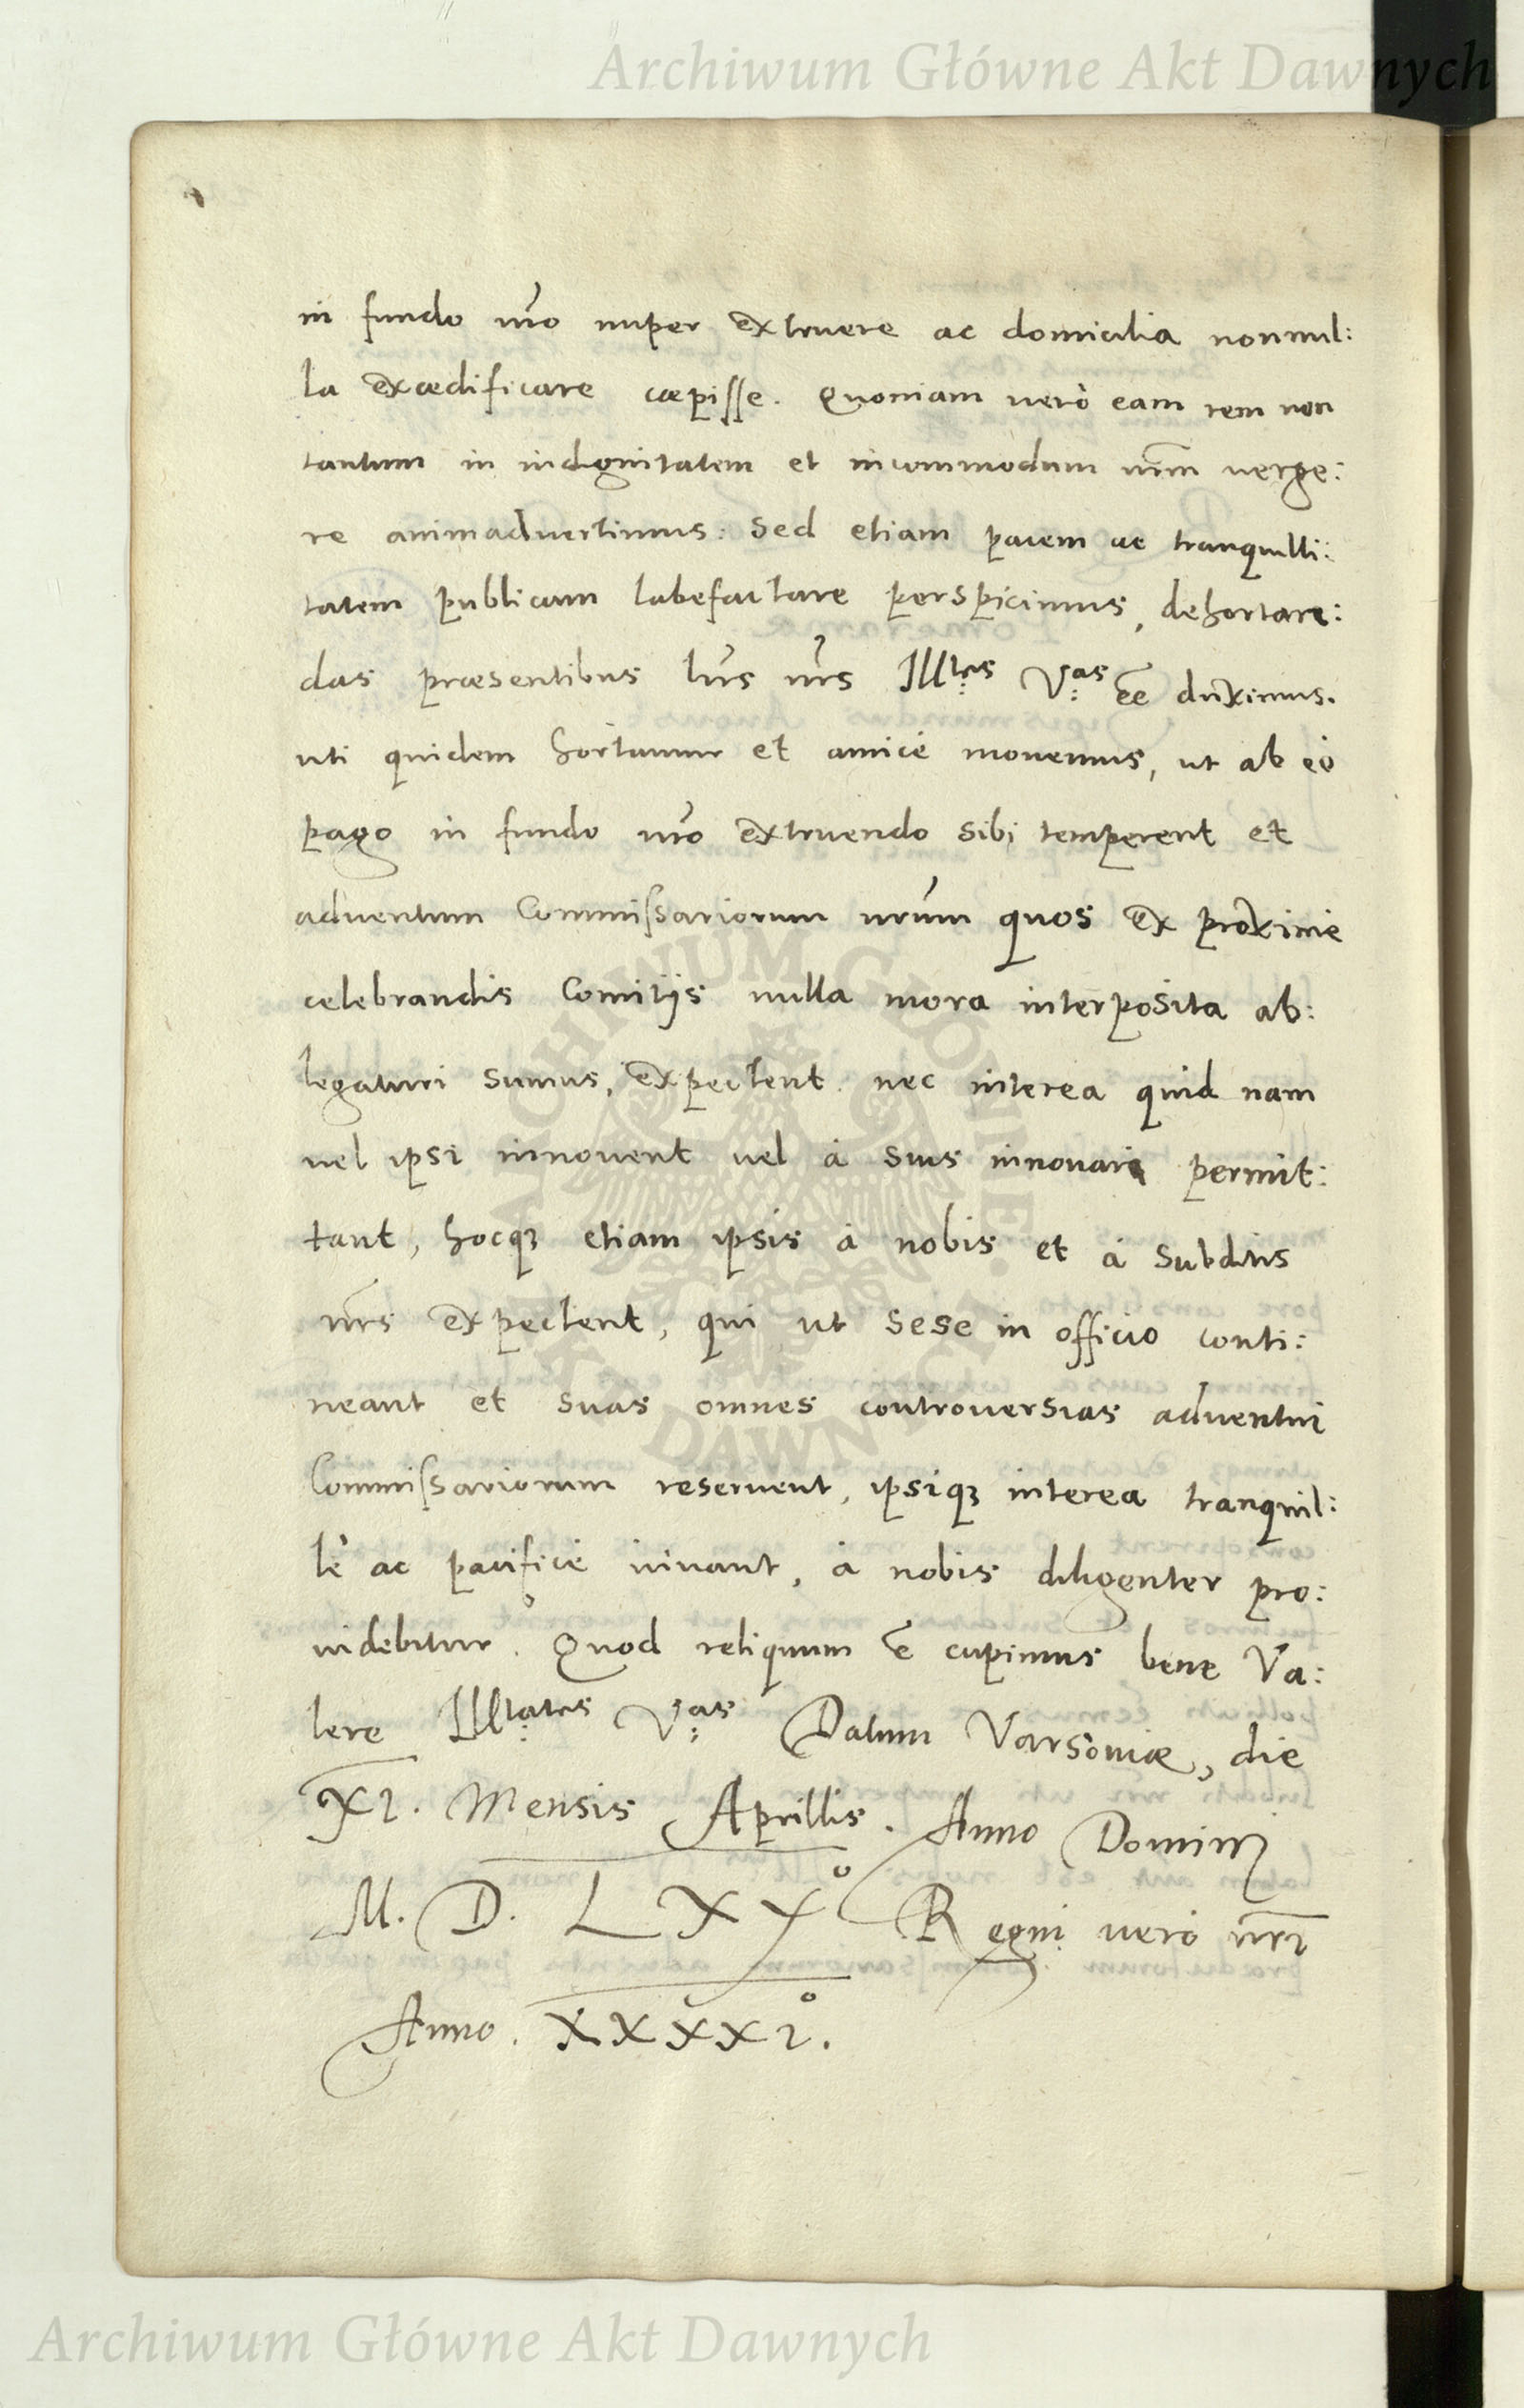 Archiwum Główne Akt Dawnych
in fundo nr̃o nuper extruere ac domicilia nonnul:
la exædificare cæpisse. Quoniam verò eam rem non
tantum in indignitatem et incommodum nr̃m verge:
re animadvertimus: Sed etiam pacem ac tranquilli:
tatem publicam labefactare perspicimus, dehortan:
das præsentibus lr̃is nr̃is Illtes Vas eẽ duximus.
uti quidem hortamur et amicè monemus, ut ab eò
pago in fundo nr̃o extruendo sibi temperent et
adventum Commissariorum nr̃um quos ex proximè
celebrandis Comitijs nulla mora interposita ab:
legaturi sumus, expectent. nec interea quid nam
vel ipsi innovent vel à suis innovari permit:
tant, hocq3 etiam ipsis à nobis et à subditis
nr̃is expectent, qui ut sese in officio conti:
neant et suas omnes controversias adventui
Commissariorum reservent, ipsiq3 interea tranquil:
lè ac pacificè vivant, à nobis diligenter pro:
videbitur. Quod reliquum ẽ cupimus bene Va:
lere Illtates Vas Datum Varsoviæ, die
XI. Mensis Aprillis. Anno Domini
M. D. LXXo Regni verò nr̃i
Anno. XXXXIo.
ARCHIWUM GŁÓWNE AKT DAWNYCH
Archiwum Główne Akt Dawnych